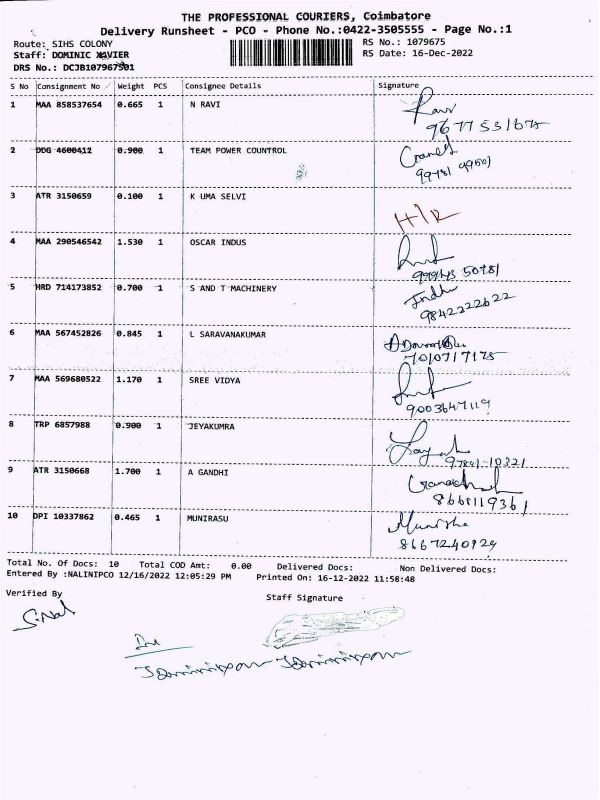 THE PROFESSIONAL COURIERS, Coimbatore
Delivery Runsheet - PCO - Phone No.:0422-3505555 - Page No.:1
Route: SIHS COLONY
RS No.: 1079675
Staff: DOMINIC XAVIER
RS Date: 16-Dec-2022
DRS No.: DCJB107967501
S No Consignment No Weight PCS Consignee Details Signature
1 MAA 858537654 0.665 1 N RAVI Ravi
2 DDG 4600412 0.900 1 TEAM POWER COUNTROL
99781 99501
3 ATR 3150659 0.100 1 K UMA SELVI H/R
4 MAA 290546542 1.530 1 OSCAR INDUS
5 HRD 714173852 0.700 1 S AND T MACHINERY Indhu
9842222622
6 MAA 567452826 0.845 1 L SARAVANAKUMAR
7010717175
7 MAA 569680522 1.170 1 SREE VIDYA
9003647119
8 TRP 6857988 0.900 1 JEYAKUMRA
97891-10321
9 ATR 3150668 1.700 1 A GANDHI
8668119361
10 DPI 10337862 0.465 1 MUNIRASU Munisha
8667240929
Total No. Of Docs: 10 Total COD Amt: 0.00 Delivered Docs: Non Delivered Docs:
Entered By :NALINIPCO 12/16/2022 12:05:29 PM Printed On: 16-12-2022 11:58:48
Verified By
Staff Signature